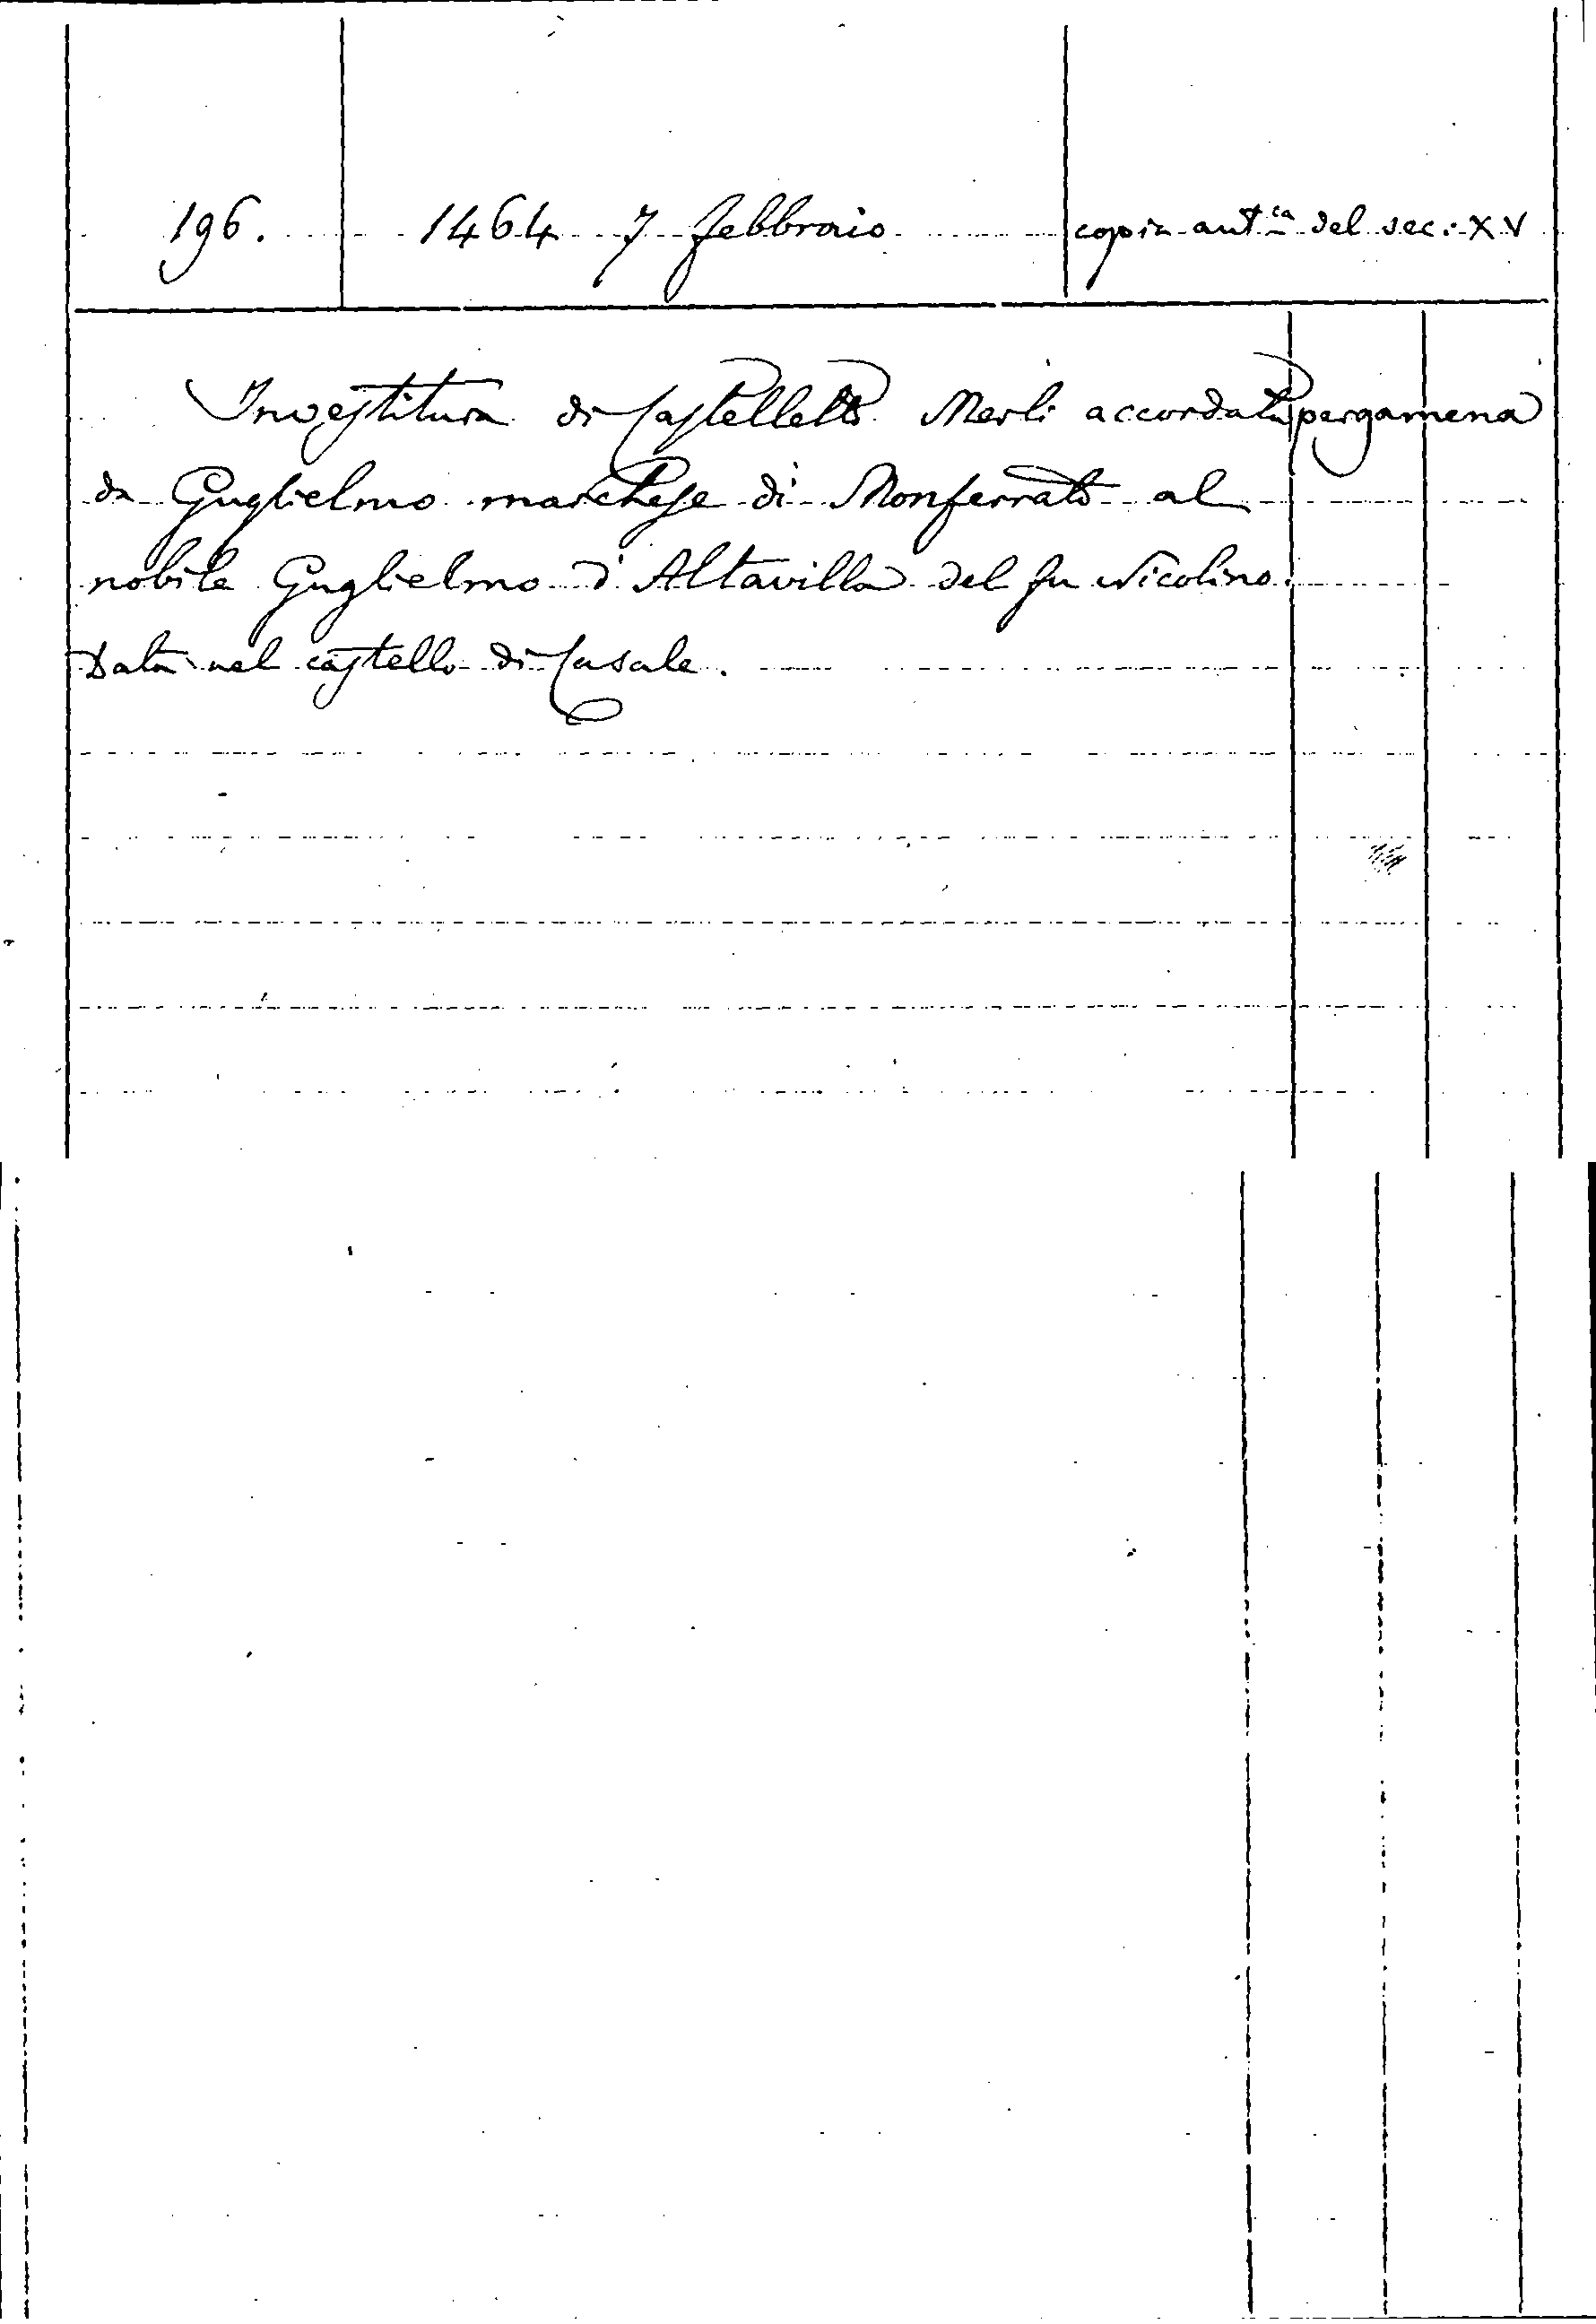 196. 1464 7 febbraio copia aut.ca del sec. XV
Investitura di Castelletto Merli accordata pergamena
da Guglielmo marchese di Monferrato al
nobile Guglielmo d'Altavilla del fu Nicolino.
Data nel castello di Casale.